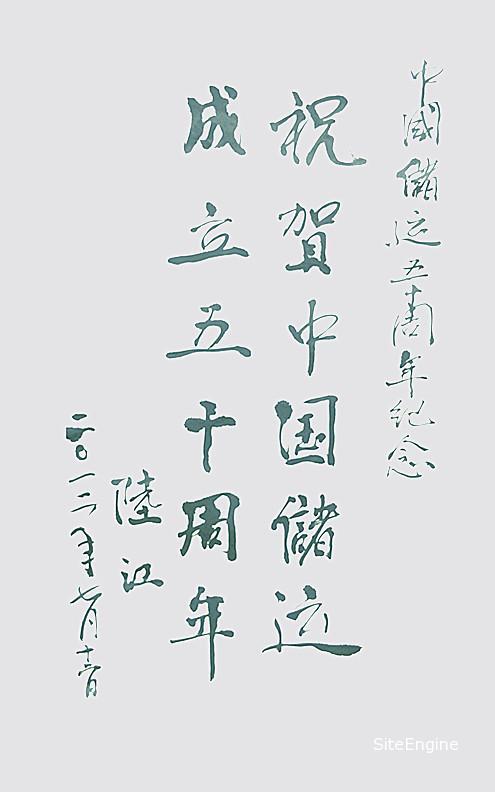 中國儲运五十周年纪念
祝賀中国儲运
成立五十周年
陸江
二〇一二年七月十二日
SiteEngine